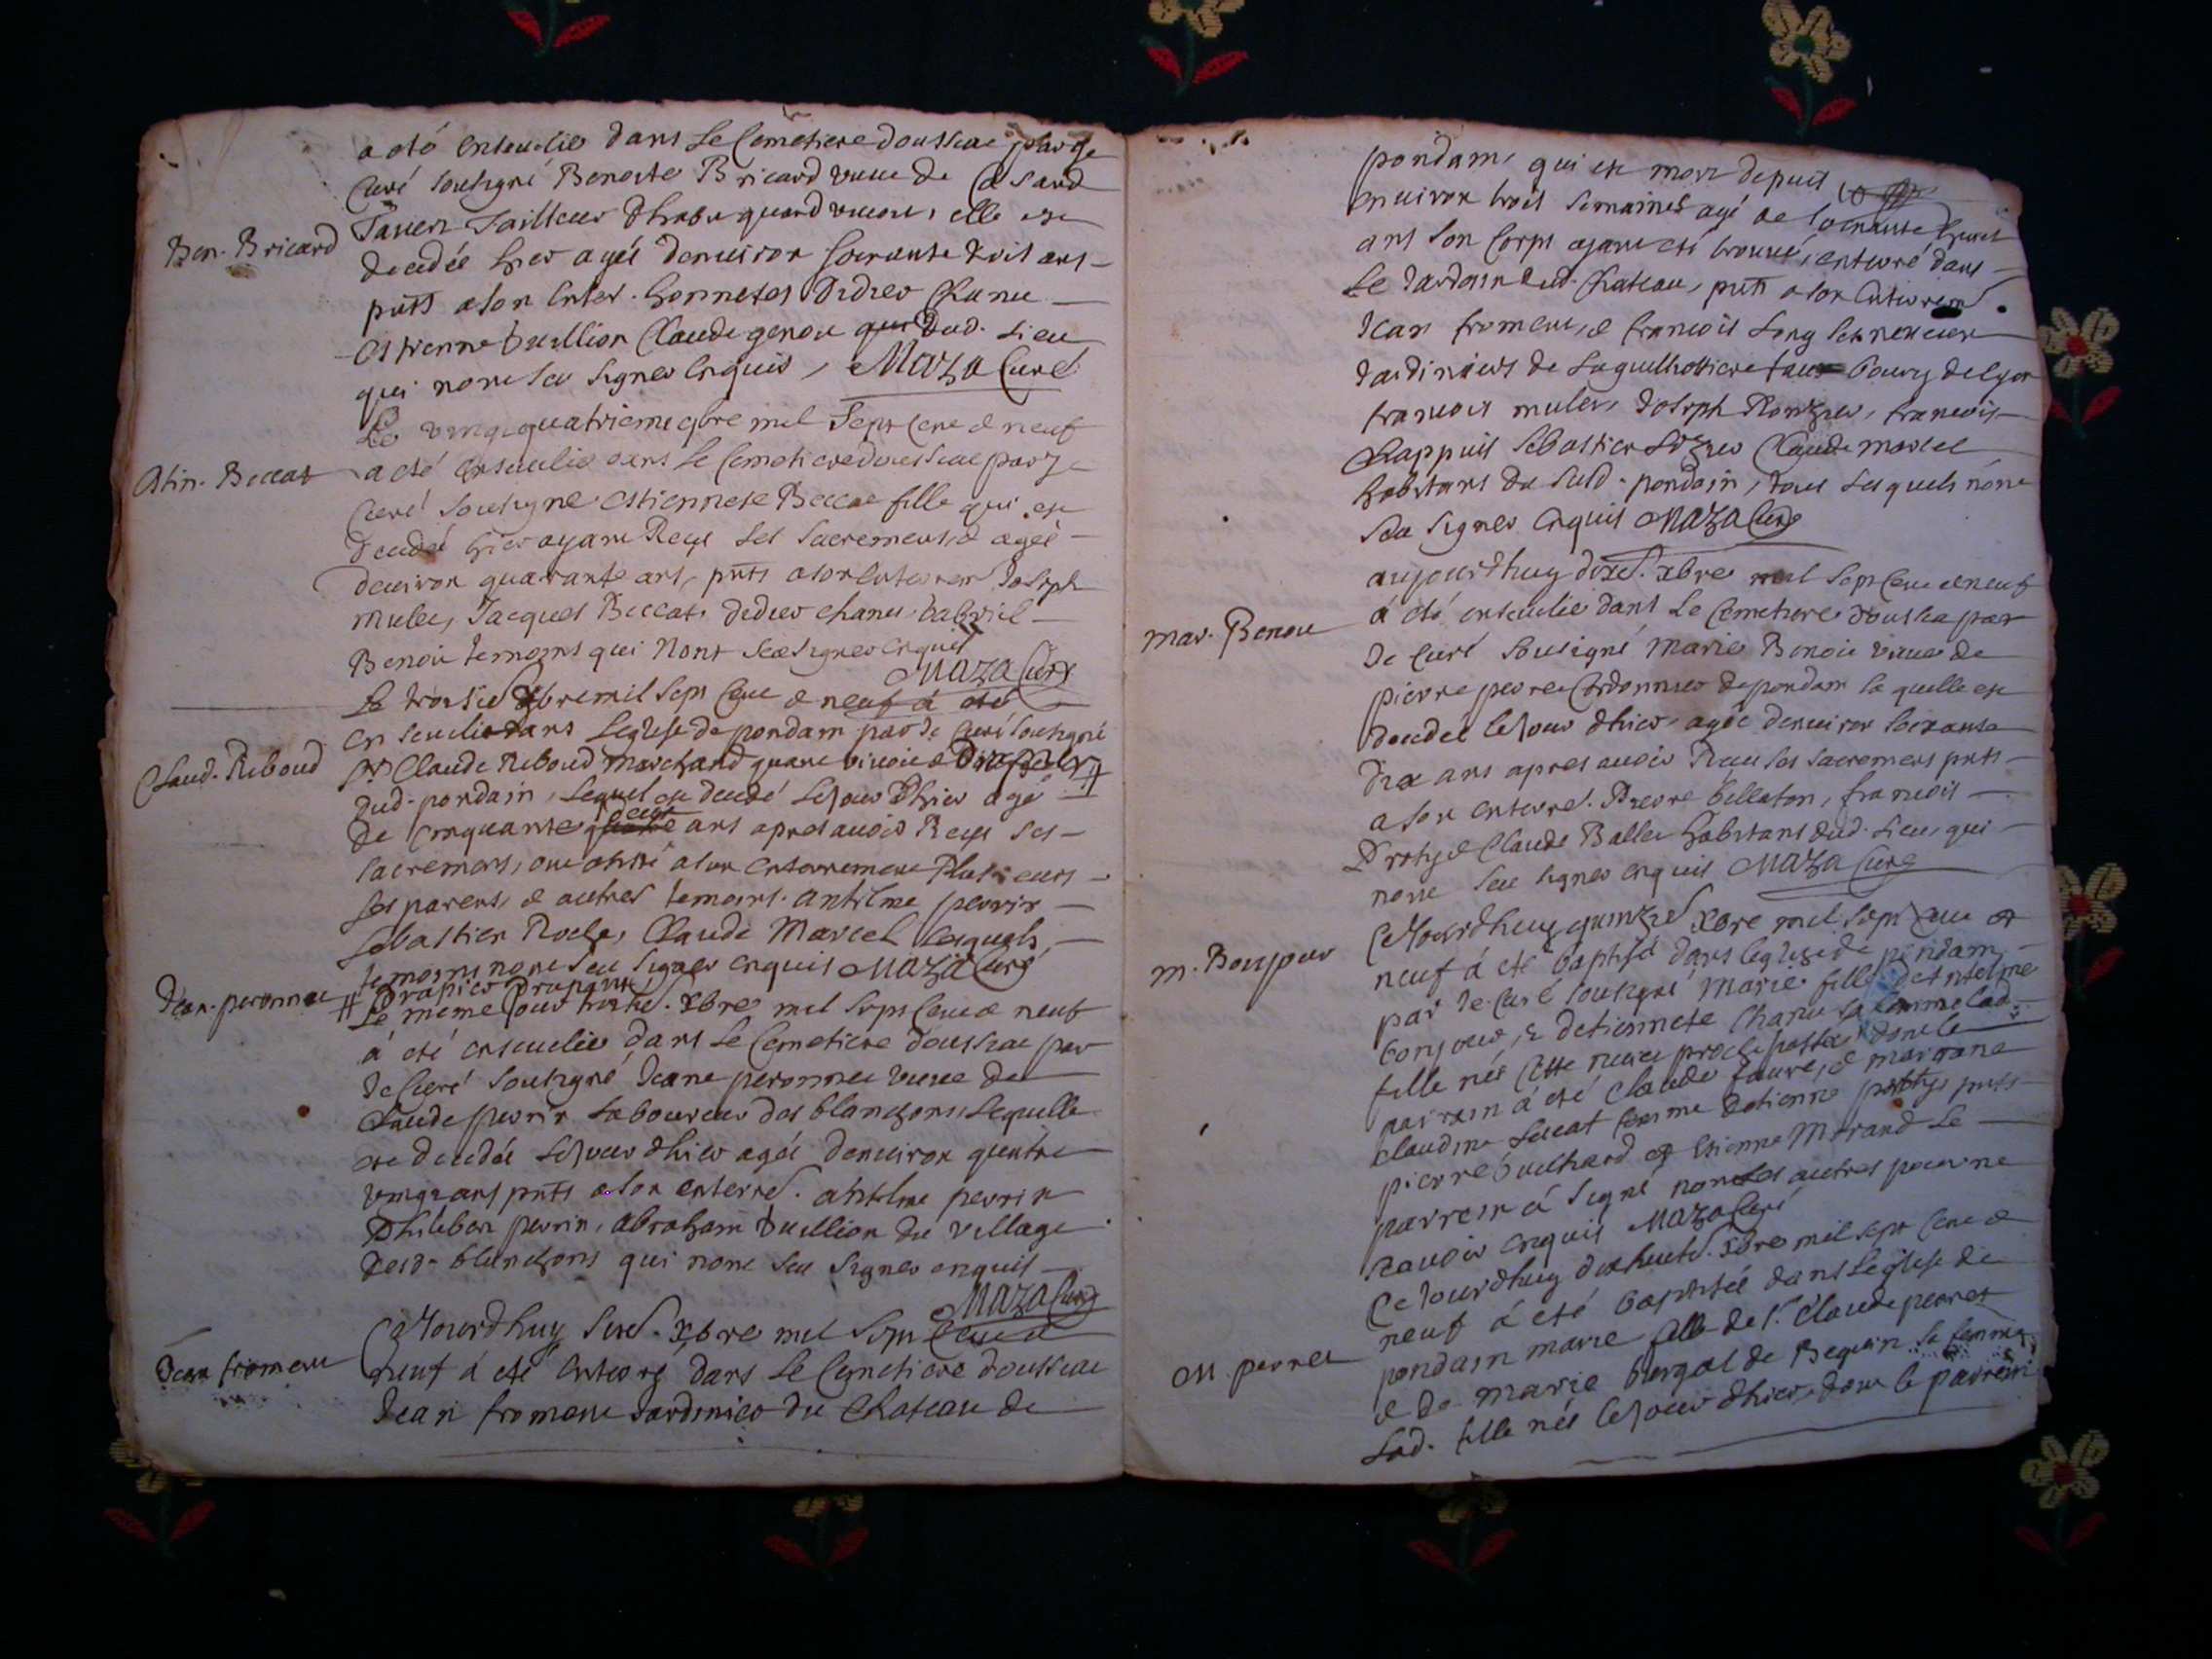 a eté enseuelie dans Le Cemetiere dousseae par Je
Curé soussigné Benoite Bricard vueue de
Tailleur dhabis quand viuoit, elle est
Ben. Bricard
decedée hier agée denuiron soixante trois ans
pnts a son enter. honnetes Didier Chanu
Estienne Vuillion Claude genou dud. Lieu
qui nont sceu signer enquis, Maza Curé
Le vingtquatrieme 9bre mil Sept Cent et neuf
Estin. Beccat
a eté enseuelie dans le Cemetiere dousseae par Je
Curé soussigné Estiennete Beccat fille qui est
decedée hier ayant Receu les sacremens, et agée
denuiron quarante ans, pnts a son enterrem Joseph
mulet, Jacques Beccat, didier chanu, Gabriel
Benoit temoins qui Nont sceu signer enquis
Maza Curé
Le troisie. Xbre mil sept Cent et neuf a eté
enseueli dans Leglise de pondain par Je Curé soussigné
Claud. Reboud
Sr Claude Reboud marchand quand viuoit
dud. pondain, lequel est decedé le jour dhier agé
de cinquante deux ans apres auoir Receu ses
sacremens, ont assisté a son enterrement Plusieurs
ses parens, et autres temoins. antelme perrin
sebastien Roche, Claude Marcel lesquels
temoins nont sceu signer enquis Maza Curé
# Drapier Drapant
Jean. peronnet
Le meme jour troisie. Xbre mil sept Cent et neuf
a eté enseuelie dans le Cemetiere dousseae par
Je Curé soussigné Jeane peronnet vueue de
Claude perrin Laboureur des blanchons, Laquelle
est decedée le jour dhier agée denuiron quatre
vingt ans pnts a son enterre. antelme perrin
Philibert perrin, abraham Vuillion du village
desd. blanchons qui nont sceu signer enquis
Maza Curé
Cejourdhuy sixe. Xbre mil sept Cent et
Jean froment
neuf a eté enterré dans le Cemetiere dousseae
Jean froment Jardinier du Chateau de
pondain, qui est mort depuis
enuiron trois semaines agé de soixante huit
ans son corps ayant eté trouué, enterré dans
le Jardain dud. Chateau, pnts a son enterrem
Jean froment, et francois Long ses neueux
Jardiniers de Laguilhottiere faux Bourg de Lyon
francois mulet, Joseph Rontzier, francois
Chappuis sebastien Claude marcel
habitans du susd. pondain, tous lesquels nont
sceu signer enquis Maza Curé
aujourdhuy dixe. Xbre mil sept Cent et neuf
a eté enseuelie dans Le Cemetiere dousseae par
mar. Benoit
Je Curé soussigné Marie Benoit vueue de
pierre perret Cordonnier de pondain laquelle est
decedée le jour dhier, agée denuiron soixante
dix ans apres auoir Receu ses sacremens pnts
a son enterre. Pierre billaton, francois
Prost, et Claude Ballet habitans dud. Lieu, qui
nont sceu signer enquis Maza Curé
Cejourdhuy quinze. Xbre mil sept Cent et
m. Bonjour
neuf a eté baptisée dans leglise de pondain
par Je Curé soussigné Marie fille dantelme
bonjour, et detiennete Chanu sa femme Lad.
fille née cette nuict proche passée, dont le
parrain a eté Claude faure, et marraine
claudine Leccat femme detienne pnts
pierre Guichard et Etienne Morand Le
parrain a signé non les autres pour ne
scauoir enquis Maza Curé
Cejourdhuy dixhuite. Xbre mil sept Cent et
neuf a eté baptisée dans Leglise de
m. perret
pondain marie fille de Sr Claude perret
et de marie de Beguin sa femme
Lad. fille née le jour dhier, dont le parrein